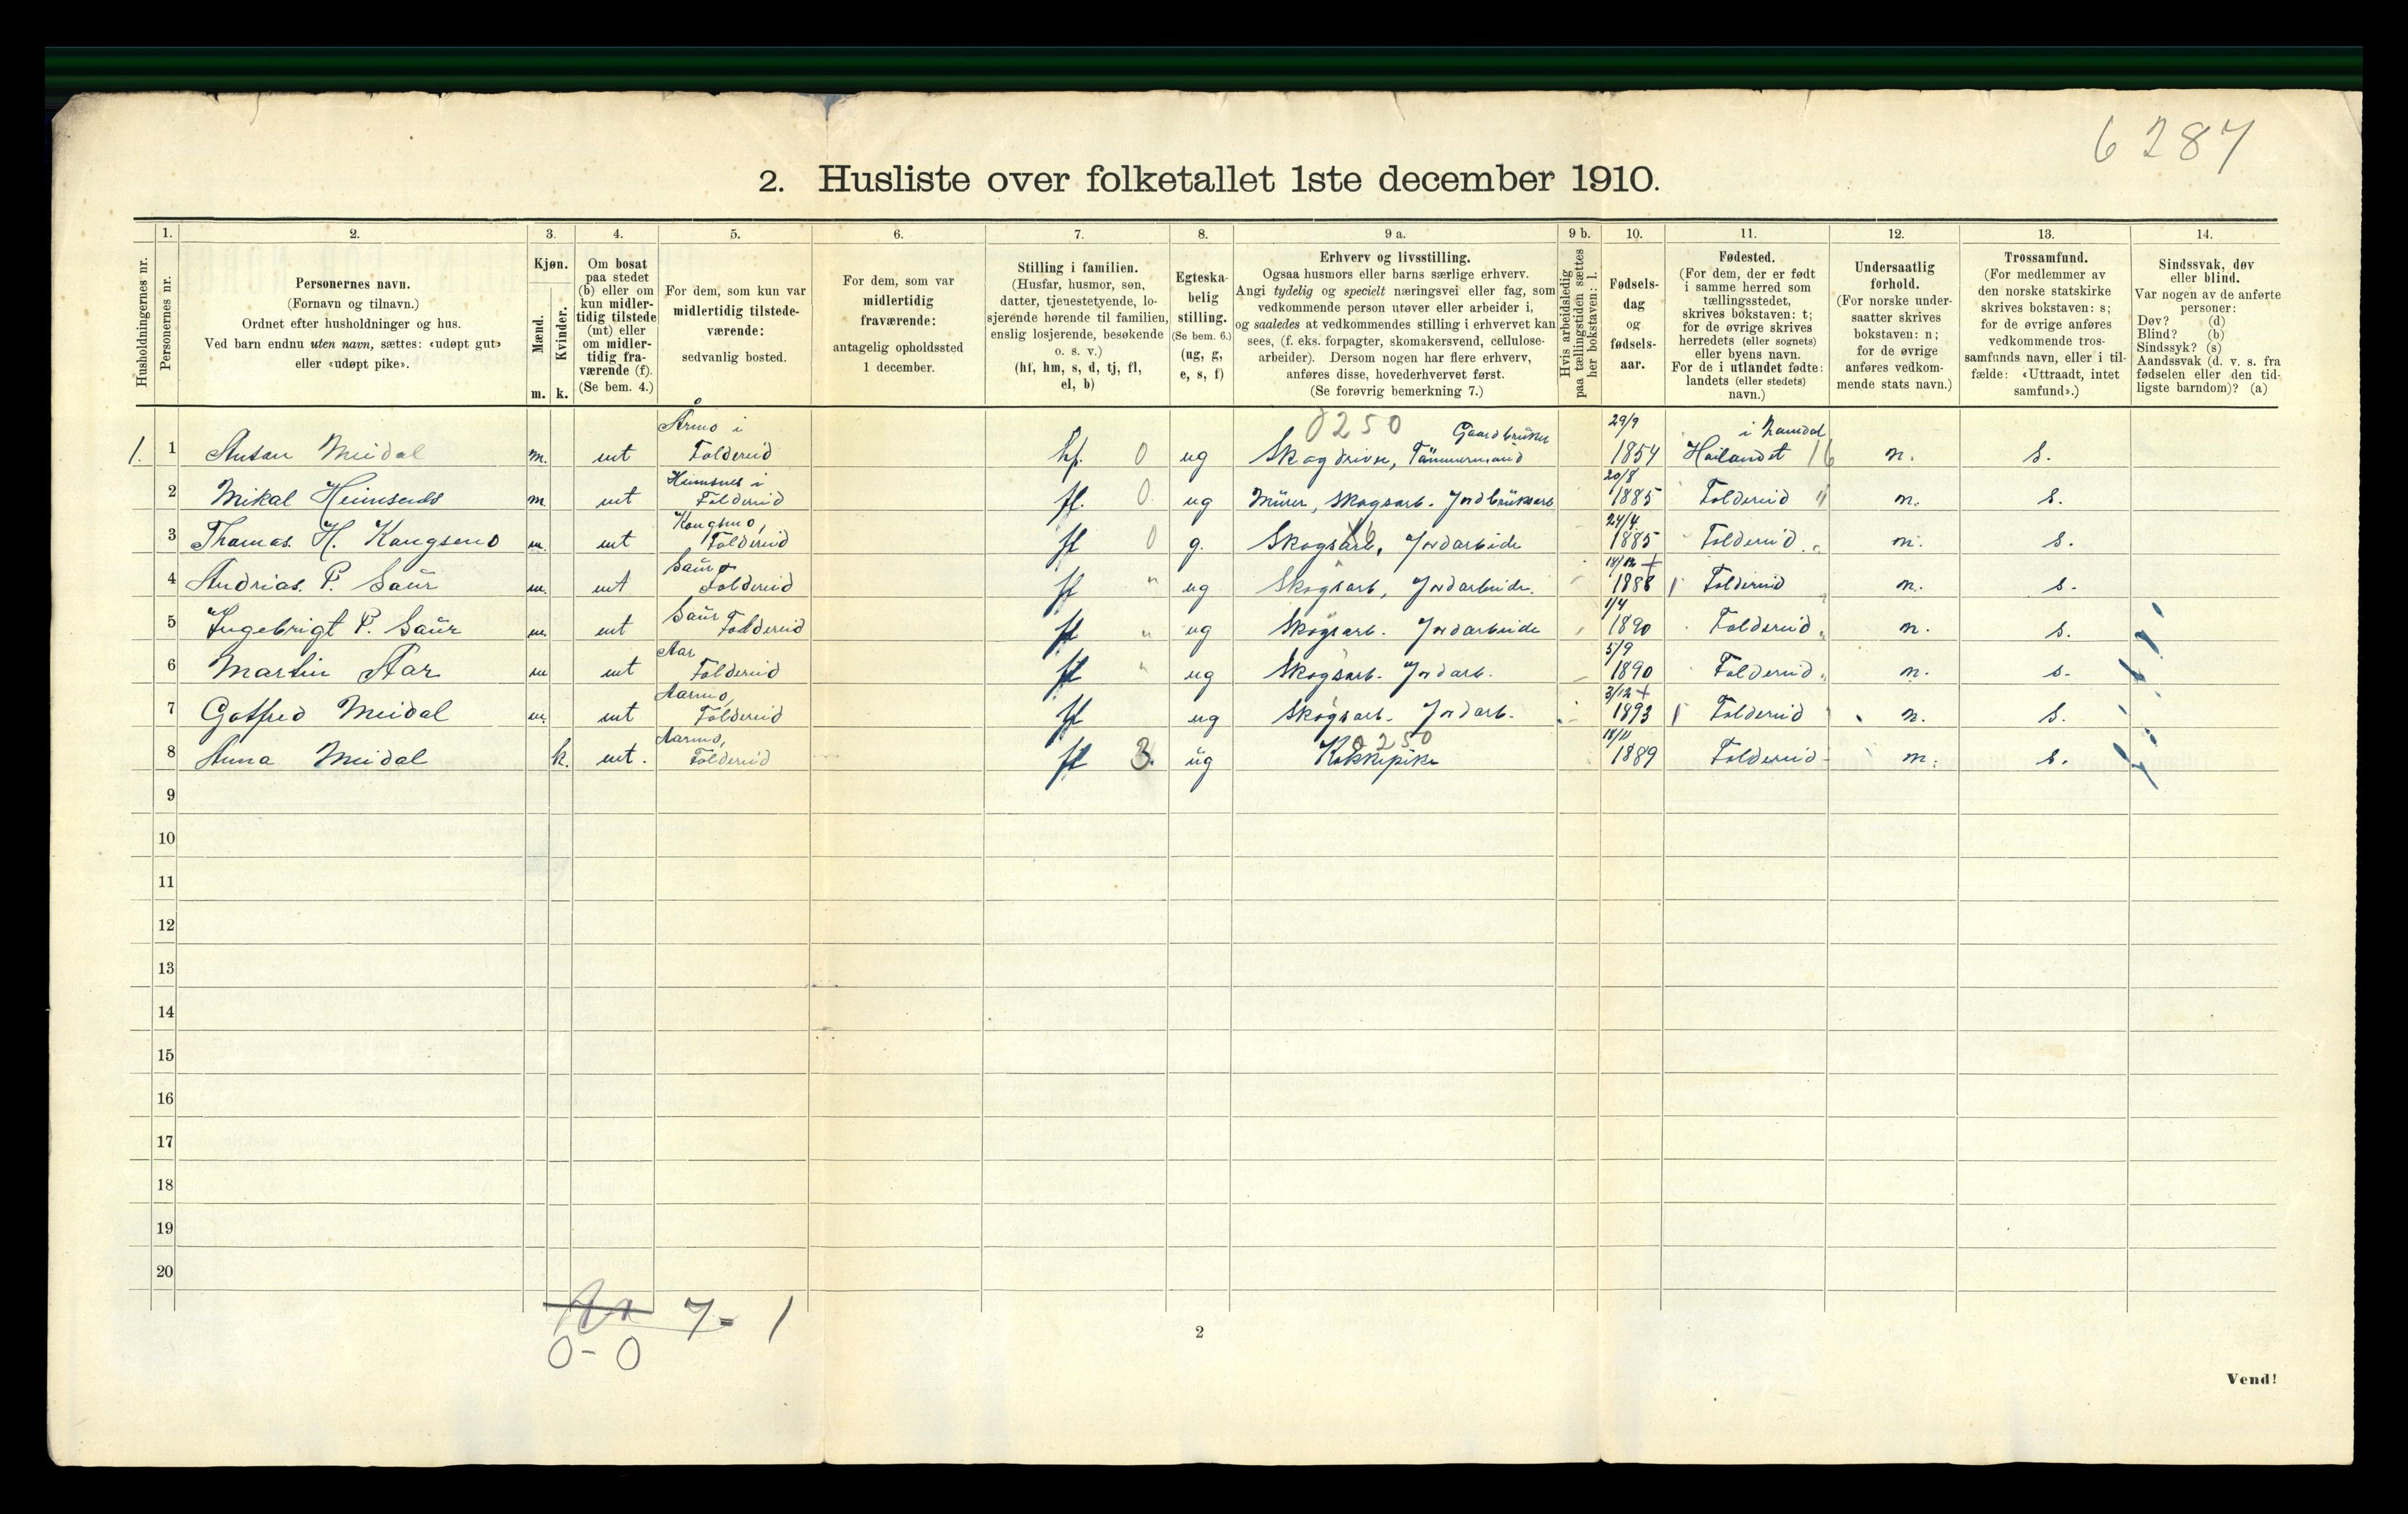 6287
2. Husliste over folketallet 1ste december 1910.
Husholdningernes nr.
1. Personernes nr.
2. Personernes navn.
(Fornavn og tilnavn.)
Ordnet efter husholdninger og hus.
Ved barn endnu uten navn, sættes: «udøpt gut»
eller «udøpt pike».
3. Kjøn.
Mænd. Kvinder.
m. k.
4. Om bosat
paa stedet
(b) eller om
kun midler-
tidig tilstede
(mt) eller
om midler-
tidig fra-
værende (f).
(Se bem. 4.)
5. For dem, som kun var
midlertidig tilstede-
værende:
sedvanlig bosted.
6. For dem, som var
midlertidig
fraværende:
antagelig opholdssted
1 december.
7. Stilling i familien.
(Husfar, husmor, søn,
datter, tjenestetyende, lo-
sjerende hørende til familien,
enslig losjerende, besøkende
o. s. v.)
(hf, hm, s, d, tj, fl,
el, b)
8. Egteska-
belig
stilling.
(Se bem. 6.)
(ug, g,
e, s, f)
9 a. Erhverv og livsstilling.
Ogsaa husmors eller barns særlige erhverv.
Angi tydelig og specielt næringsvei eller fag, som
vedkommende person utøver eller arbeider i,
og saaledes at vedkommendes stilling i erhvervet kan
sees, (f. eks. forpagter, skomakersvend, cellulose-
arbeider). Dersom nogen har flere erhverv,
anføres disse, hovederhvervet først.
(Se forøvrig bemerkning 7.)
9 b. Hvis arbeidsledig
paa tællingstiden sættes
her bokstaven: l.
10. Fødsels-
dag
og
fødsels-
aar.
11. Fødested.
(For dem, der er født
i samme herred som
tællingsstedet,
skrives bokstaven: t;
for de øvrige skrives
herredets (eller sognets)
eller byens navn.
For de i utlandet fødte:
landets (eller stedets)
navn.)
12. Undersaatlig
forhold.
(For norske under-
saatter skrives
bokstaven: n;
for de øvrige
anføres vedkom-
mende stats navn.)
13. Trossamfund.
(For medlemmer av
den norske statskirke
skrives bokstaven: s;
for de øvrige anføres
vedkommende tros-
samfunds navn, eller i til-
fælde: «Uttraadt, intet
samfund».)
14. Sindssvak, døv
eller blind.
Var nogen av de anførte
personer:
Døv? (d)
Blind? (b)
Sindssyk? (s)
Aandssvak (d. v. s. fra
fødselen eller den tid-
ligste barndom)? (a)
Årmo i 0250 Gaardbruker 29/9 i Namdal
1. 1 Anton Meidal m. mt Foldereid hf. 0 ug Skogdriver, Tømmermand 1854 Høilandet 16 n. s.
Heimsnes i 20/8
2 Mikal m mt Foldereid fl. 0. ug Murer, Skogsarb. Jordbruksarb 1885 Foldereid " n. s.
Kongsmo, 24/4
3 Thomas. H. Kongsmo m. mt Foldereid fl 0 g. Skogsarb, Jordarbeide 1885 Foldereid n. s.
Saur 14/12
4 Andrias. P. Saur m. mt Foldereid fl " ug Skogsarb, Jordarbeide. 1888 Foldereid n. s.
Saur 1/4
5 Ingebrigt P. Saur m. mt Foldereid fl " ug Skogsarb. Jordarbeide 1890 Foldereid n. s.
Aar 5/9
6 Martin Aar m mt Foldereid fl " ug Skogsarb. Jordarb. 1890 Foldereid n. s.
Aarmo, 3/12
7 Gotfred Meidal m. mt Foldereid fl ug Skogsarb. Jordarb. 1893 Foldereid n. s.
Aarmo, 0250 18/11
8 Anna Meidal k. mt. Foldereid fl 3. ug Kokkepike 1889 Foldereid n. s.
9
10
11
12
13
14
15
16
17
18
19
20
7 - 1
0 - 0
2
Vend!